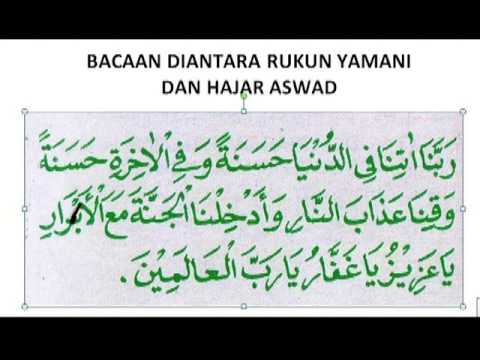 BACAAN DIANTARA RUKUN YAMANI
DAN HAJAR ASWAD
رَبَّنَا اٰتِنَا فِي الدُّنْيَا حَسَنَةً وَفِي الْاٰخِرَةِ حَسَنَةً
وَقِنَا عَذَابَ النَّارِ وَأَدْخِلْنَا الْجَنَّةَ مَعَ الْأَبْرَارِ
يَا عَزِيْزُ يَا غَفَّارُ يَا رَبَّ الْعَالَمِيْنَ .